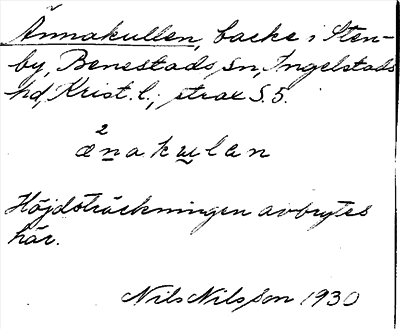 Ännakullen, backe i Sten-
by, Benestads sn, Ingelstads
hd, Krist. l.; strax S. 5.
2
ænakulen
Höjdsträckningen avbrytes
här.
Nils Nilsson 1930